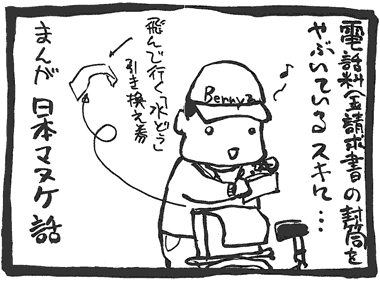 電話料金請求書の封筒を
やぶいているスキに…
飛んで行く「水どう」
引き換え券
Bernya
まんが 日本マヌケ話